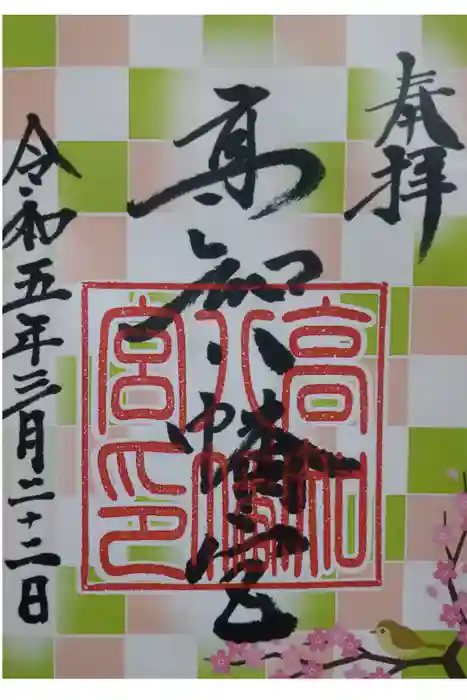 奉拝
高知八幡宮
令和五年三月二十二日
高知
八幡
宮印